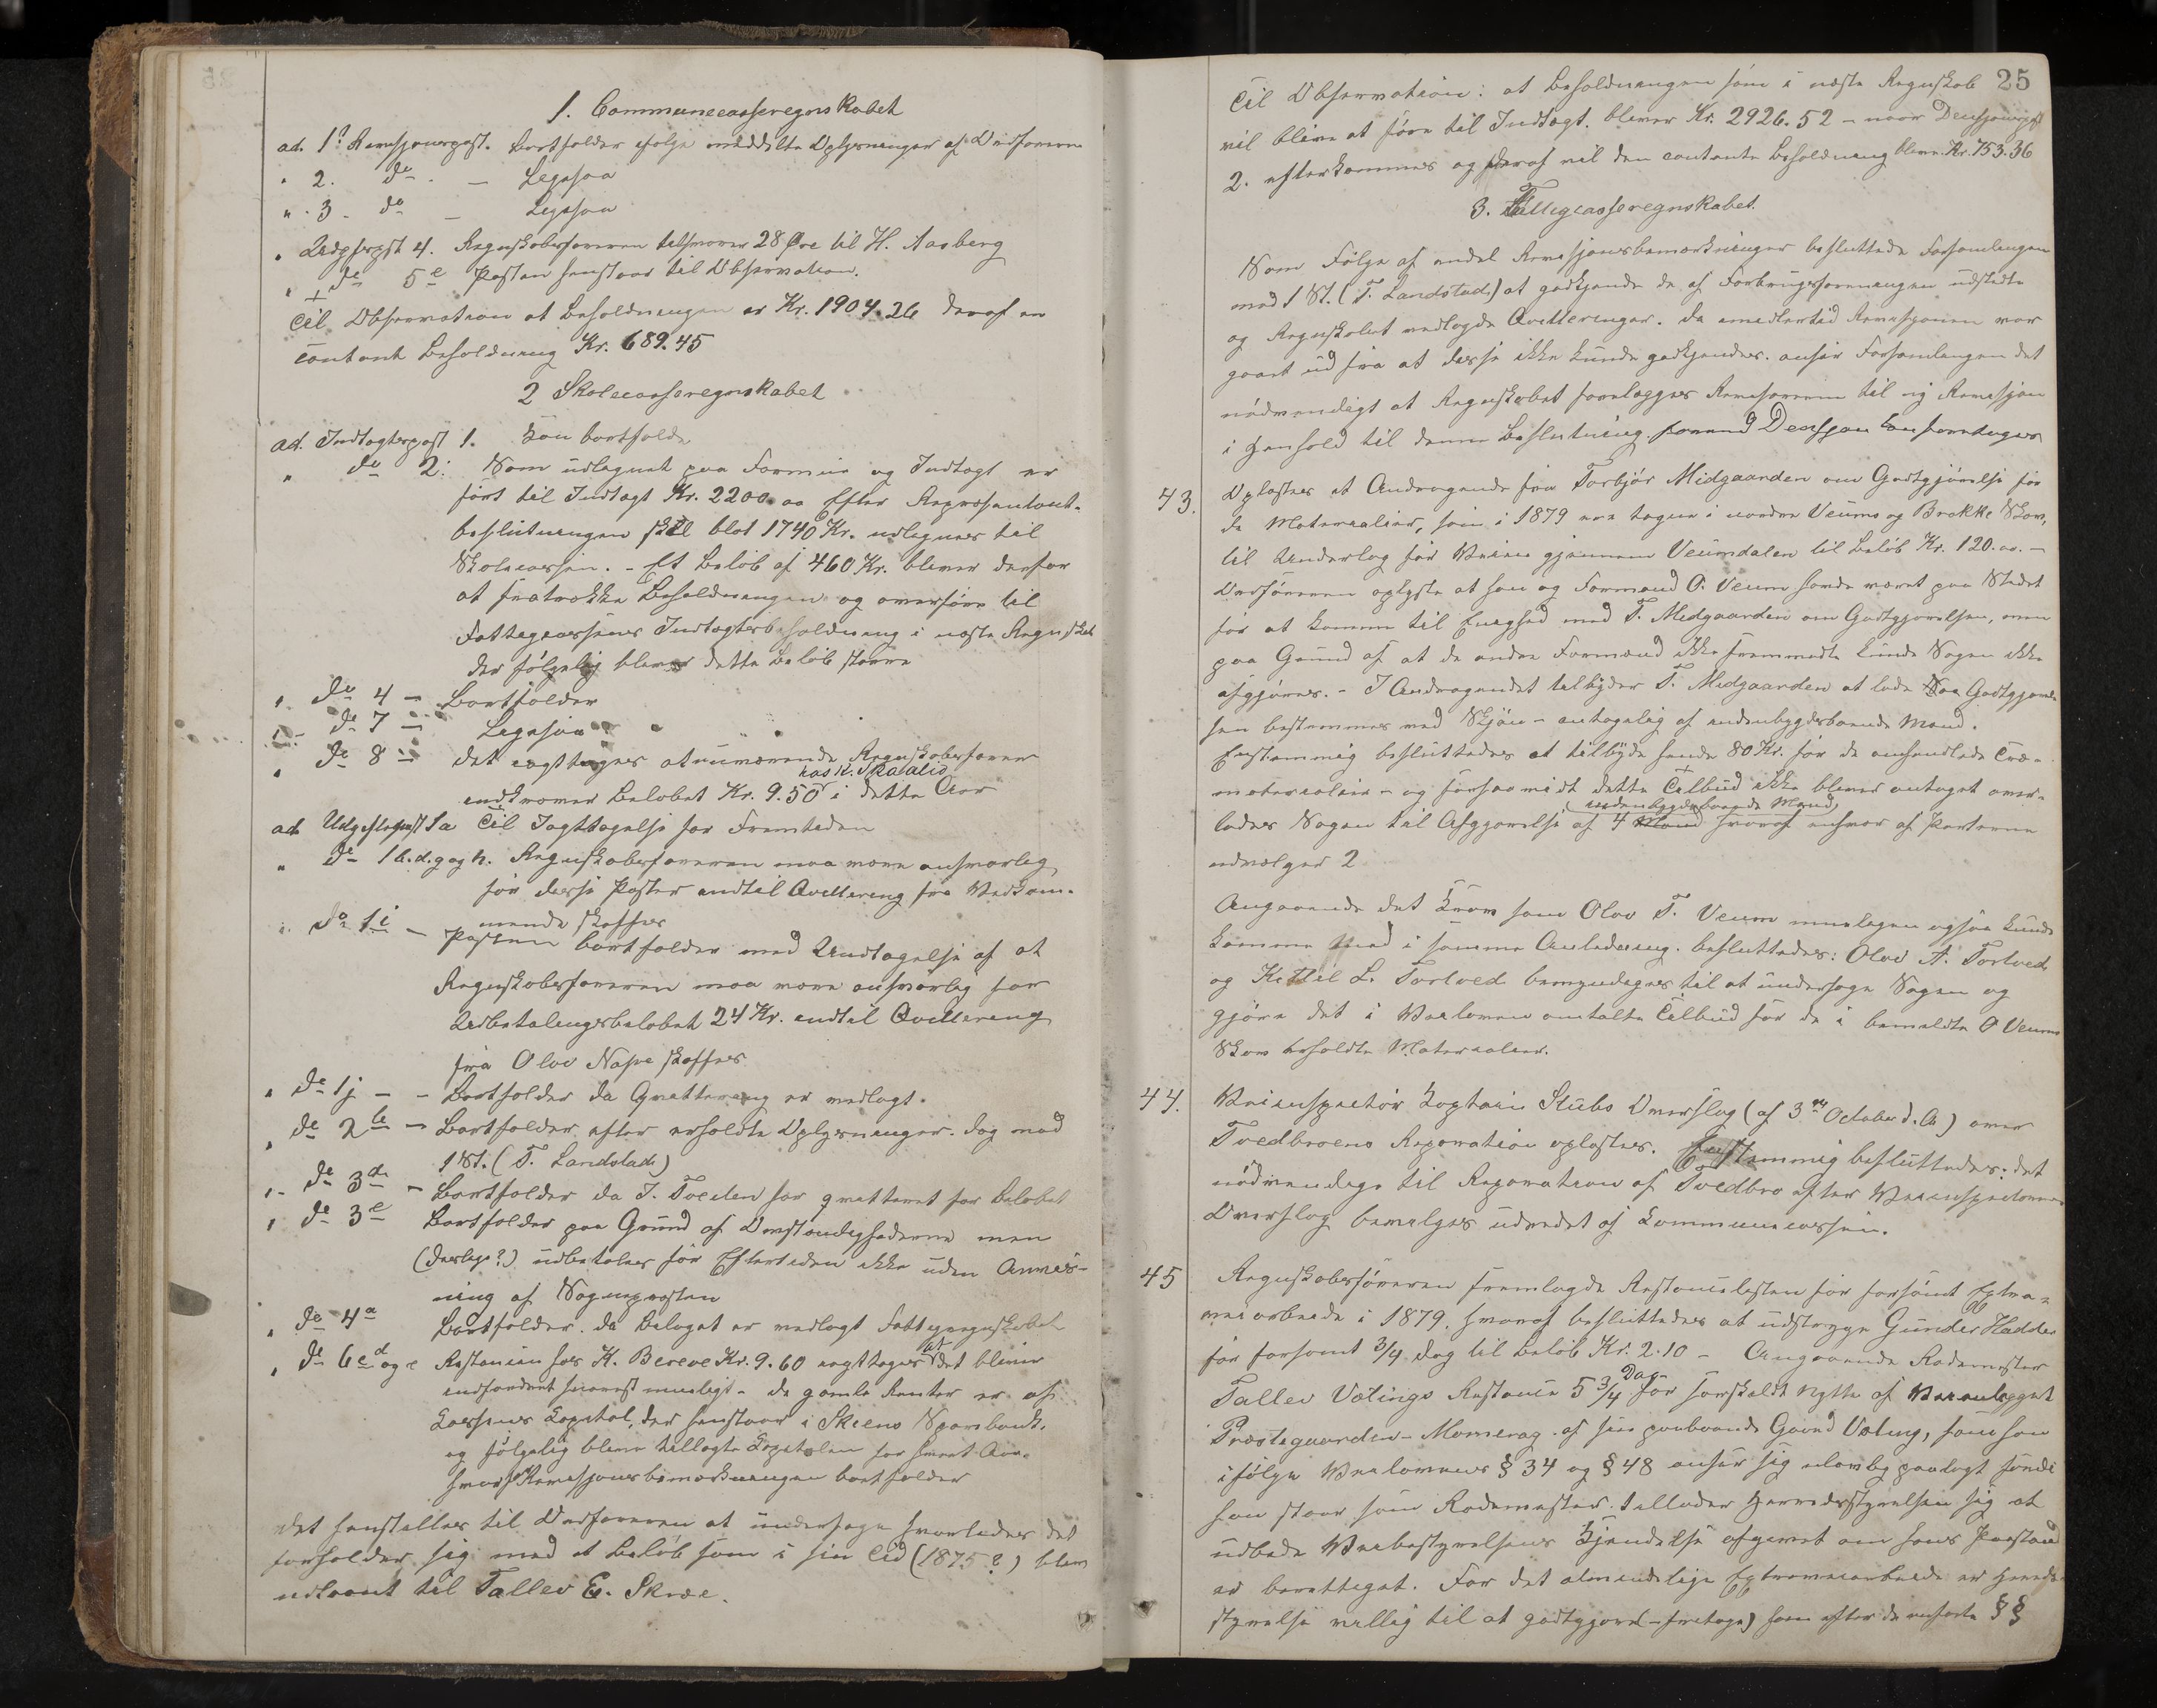 1. Communecasseregnskabet
ad. 1ste Revisjonspost. Bortfalder ifølge meddelte Oplysninger af Ordføreren
" 2. do. — Ligesaa
" 3. do — Ligesaa
" Udgiftspost 4. Regnskabsføreren tilsvarer 28 Øre til H. Aasberg
" do 5e Posten henstaar til Observation.
Til Observation at Beholdningen er Kr. 1904.26 deraf en
contant Beholdning Kr. 689.45
2 Skolecasseregnskabet
ad. Indtægtspost 1. Kan bortfalde
" do 2: Som udlignet paa Formue og Indtægt er
ført til Indtægt Kr. 2200.00 Efter Repræsentant-
beslutningen skal blot 1740 Kr. udlignes til
Skolecassen. - Et Beløb af 460 Kr. bliver derfor
at fratrække Beholdningen og overføre til
Fattigcassens Indtægtsbeholdning i næste Regnskab
der følgelig bliver dette Beløb større
" do 4 — Bortfalder
" do 7 — Ligesaa
" do 8 — Det iagttages at nuværende Regnskabsfører
hos K. Skaalid
indkræver Beløbet Kr. 9.50 i dette Aar
ad Udgiftspost 1a Til Iagttagelse for Fremtiden
" do 1b.d.g og h. Regnskabsføreren maa være ansvarlig
for disse Poster indtil Qvittering fra Vedkom-
mende skaffes
" do 1i — Posten bortfalder med Undtagelse af at
Regnskabsføreren maa være ansvarlig for
Udbetalingsbeløbet 24 Kr. indtil Qvittering
fra Olav Nape skaffes
" do 1j — - Bortfalder da Qvittering er vedlagt.
" do 2b — Bortfalder efter erholdte Oplysninger. dog mod
1 St. (T. Landstad)
" do 3d — Bortfalder da J. Tveiten har qvitteret for Beløbet
" do 3e Bortfalder paa Grund af Omstændighederne men
(deslige?) udbetales for Eftertiden ikke uden Anvis-
ning af Sognepræsten
" do 4a Bortfalder. da Belaget er vedlagt Fattigregnskabet
" do 6c d og e Restancen hos K. Bereve Kr. 9.60 iagttages at det bliver
indfordret snarest muligt - de gamle Renter er af
Kassens Kapital, der henstaar i Skiens Sparebank.
og følgelig bliver tillagte Kapitalen for hvert Aar.
hvorfor Revisjonsbemærkningen bortfalder
Det henstilles til Ordføreren at undersøge hvorledes det
forholder sig med et Beløb som i sin Tid (1875?) blev
udlaant til Tallev E. Skræe.
25
Til Observation: at Beholdningen som i næste Regnskab
vil blive at føre til Indtægt. bliver Kr. 2926.52 - naar Decisjonspost
2. efterkommes og deraf vil den contante Beholdning blive Kr. 753.36
3. Fattigcasseregnskabet.
Som Følge af endel Revisjonsbemærkninger besluttede Forsamlingen
mod 1 St. (T. Landstad) at godkjende de af Forbrugsforeningen udstedte
og Regnskabet vedlagde Qvitteringer. da imidlertid Revisjonen var
gaaet ud fra at disse ikke kunde godkjendes. anser Forsamlingen det
nødvendigt at Regnskabet forelægges Revisorerne til ny Revisjon
i Henhold til denne Beslutning. forend Decisjon kan foretages
43. Oplæstes et Andragende fra Torbjør Midgaarden om Godtgjørelse for
de Materialier, som i 1879 ere tagne i nordre Veums og Brokke Skov,
til Underlag for Veien gjennem Veumdalen til Beløb Kr. 120.00. —
Ordføreren oplyste at han og Formand O. Veum havde været paa Stedet
for at komme til Enighed med T. Midgaarden om Godtgjørelsen, men
paa Grund af at de andre Formænd ikke fremmødte kunde Sagen ikke
afgjøres. - I Andragendet tilbyder T. Midgaarden at lade Saa Godtgjørel-
sen bestemmes ved Skjøn - antagelig af indenbygdsboende Mænd.
Enstemmig besluttedes at tilbyde hende 80 Kr. for de omhandlede Træ-
materialier - og forsaavidt dette Tilbud ikke bliver antaget over-
(indenbygdsboende Mænd)
lades Sagen til Afgjørelse af 4 Mænd hvoraf enhver af Parterne
udvælger 2
Angaaende det Krav som Olav T. Veum muligens ogsaa kunde
komme med i samme Anledning. besluttedes: Olav A. Tortveit
og Kittil L. Tortved bemyndiges til at undersøge Sagen og
gjøre det i Veiloven omtalte Tilbud for de i bemeldte O Veums
Skov beholdte Materialier.
44. Veiinspectør Kaptein Stubs Overslag (af 3die October d.A) over
Tvedbroens Reparation oplæstes. Enstemmig besluttedes: det
nødvendige til Reparation af Tvedbro efter Veiinspectørens
Overslag bevilges udredet af Kommunecassen.
45 Regnskabsføreren fremlagde Restancelisten for forsømt Extra-
veiarbeide i 1879, hvoraf besluttedes at udstryge Gunder Haddeir
for forsømt 3/4 Dag til Beløb Kr. 2.10 - Angaaende Rodemester
Tallev Vælings Restance 5 3/4 Dag for særskildt Nytte af Veianlægget
Præstegaarden - Momrag af sin paaboende Gaard Væling, som han
ifølge Veilovens § 34 og § 48 anser sig ulovlig paalagt fordi
han staar som Rodemester. tillader Herredsstyrelsen sig at
udbede Veibestyrelsens Kjendelse afgivet om hans Paastand
er berettiget. For det almindelige Extraveiarbeide er Herreds-
styrelse villig til at godtgjøre (-fritage) ham efter de anførte §§